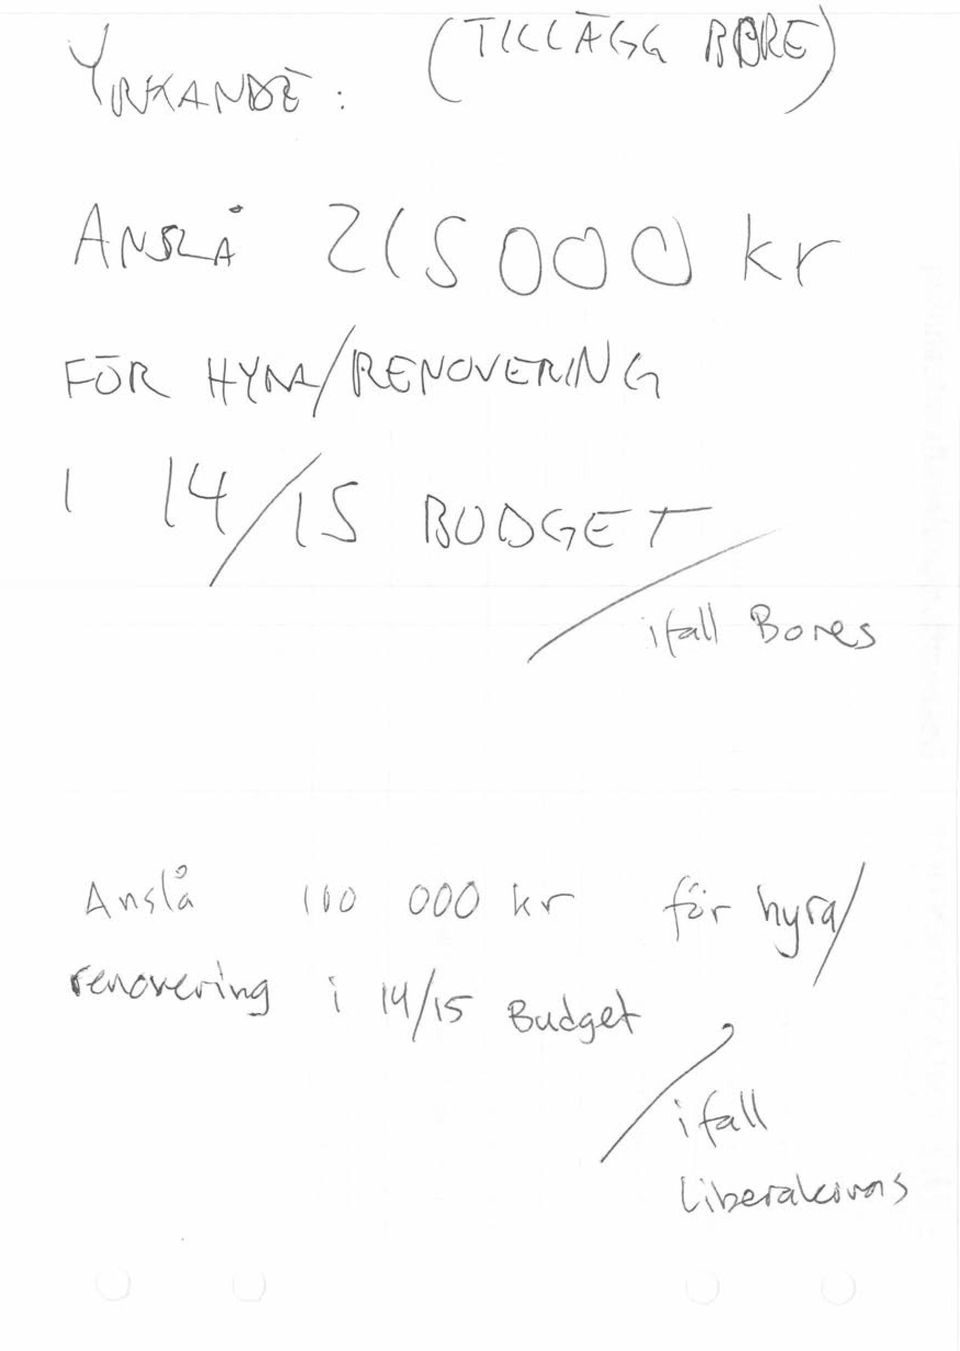 YRKANDE: (TILLÄGG BORE)
ANSLÅ 215 000 kr
FÖR HYRA/RENOVERING
I 14/15 BUDGET
/ifall Bores
Anslå 100 000 kr för hyra/
renovering i 14/15 Budget
/ifall
Liberalernas